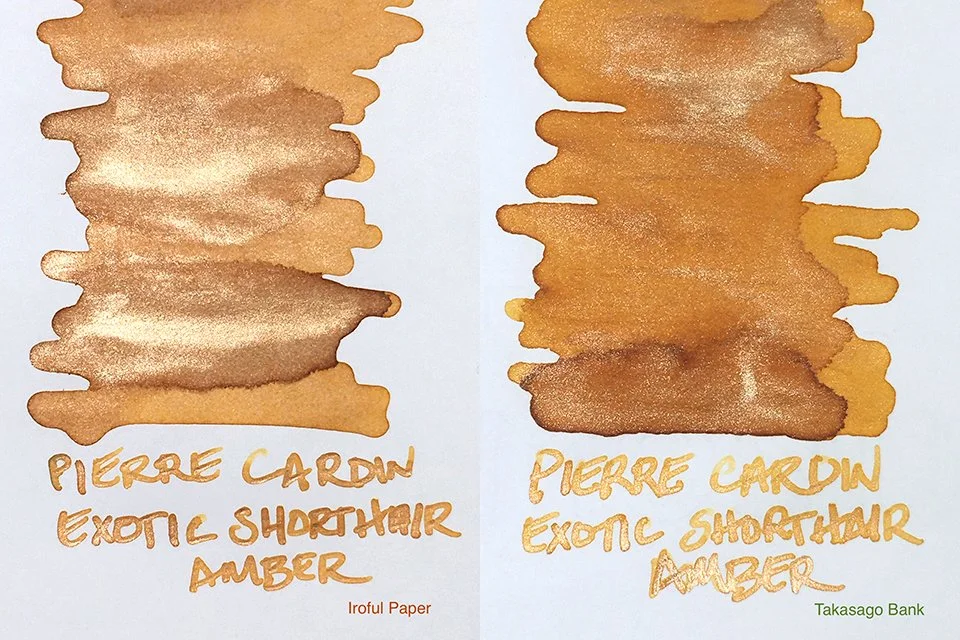 PIERRE CARDIN
EXOTIC SHORTHAIR
AMBER
Iroful Paper
PIERRE CARDIN
EXOTIC SHORTHAIR
AMBER
Takasago Bank